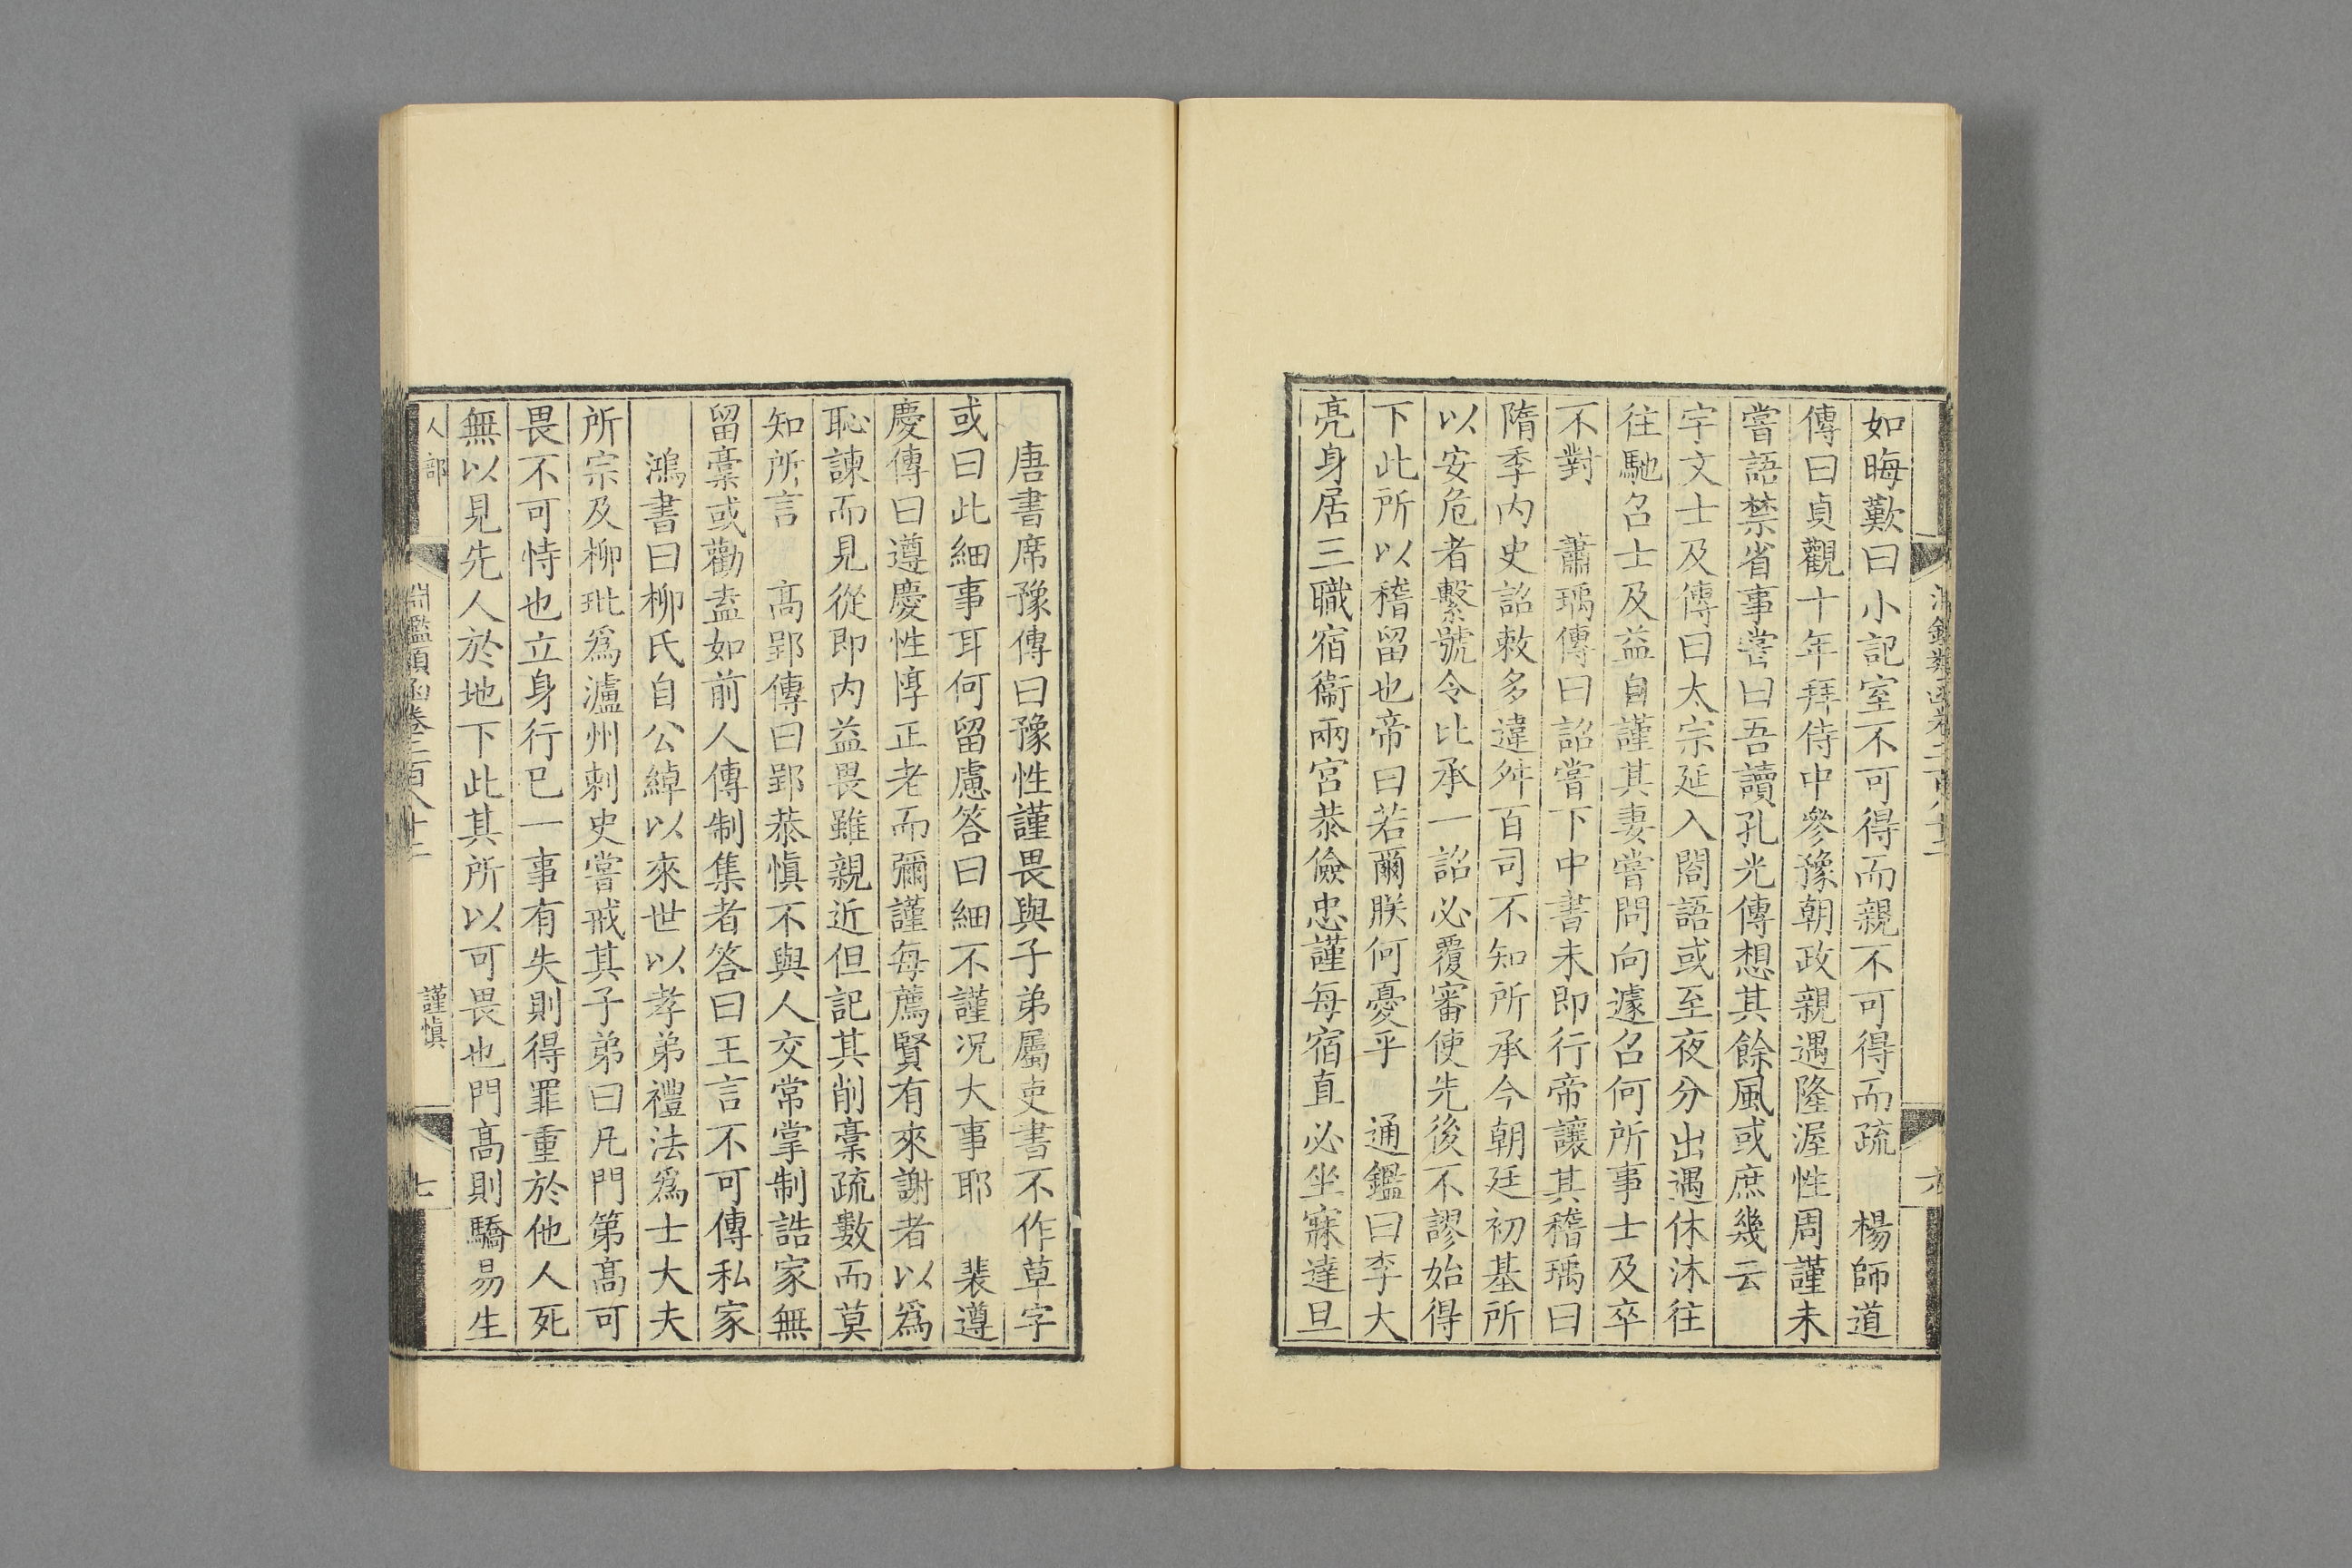 如晦歎曰小記室不可得而親不可得而疏　楊師道
傳曰貞觀十年拜侍中參豫朝政親遇隆渥性周謹未
嘗語禁省事嘗曰吾讀孔光傳想其餘風或庶幾云
宇文士及傳曰太宗延入閤語或至夜分出遇休沐往
往馳召士及益自謹其妻嘗問向遽召何所事士及卒
不對　蕭瑀傳曰詔嘗下中書未即行帝讓其稽瑀曰
隋季内史詔敕多違舛百司不知所承今朝廷初基所
以安危者繫號令比承一詔必覆審使先後不謬始得
下此所以稽留也帝曰若爾朕何憂乎　通鑑曰李大
亮身居三職宿衞兩宮恭儉忠謹每宿直必坐寐達旦
唐書席豫傳曰豫性謹畏與子弟屬吏書不作草字
或曰此細事耳何留慮答曰細不謹況大事耶　裴遵
慶傳曰遵慶性惇正老而彌謹每薦賢有來謝者以爲
恥諫而見從即内益畏雖親近但記其削稾疏數而莫
知所言　高郢傳曰郢恭慎不與人交常掌制誥家無
留稾或勸盍如前人傳制集者答曰王言不可傳私家
鴻書曰柳氏自公綽以來世以孝弟禮法爲士大夫
所宗及柳玭爲瀘州刺史嘗戒其子弟曰凡門第高可
畏不可恃也立身行已一事有失則得罪重於他人死
無以見先人於地下此其所以可畏也門高則驕易生
人部
淵鑑類函卷二百八十二
謹慎
七